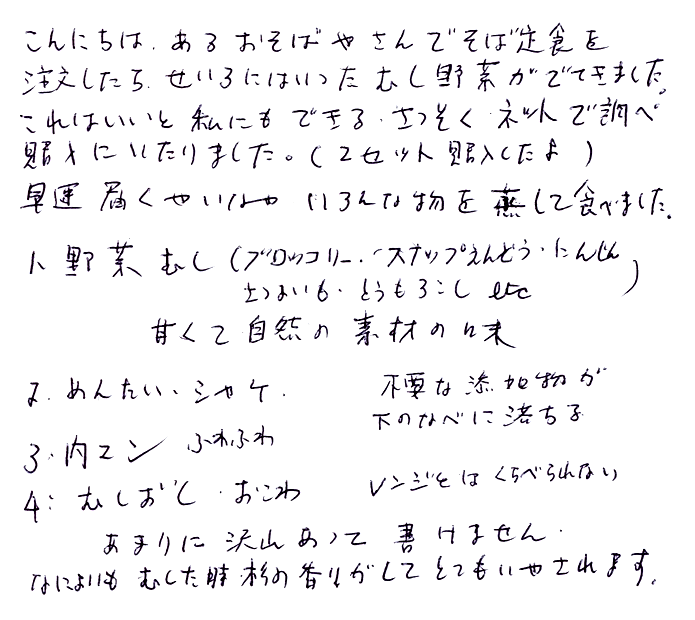 こんにちは、あるおそばやさんでそば定食を
注文したら、せいろにはいったむし野菜がでてきました。
これはいいと私にもできる・さっそくネットで調べ
購入にいたりました。（2セット購入したよ）
早速届くやいなやいろんな物を蒸して食べました。
1、野菜むし（ブロッコリー・スナップえんどう・にんじん
さつまいも・とうもろこしetc）
甘くて自然の素材の味
2、めんたい・シャケ．
不要な添加物が
下のなべに落ちる
3・肉マン ふわふわ
4：むしおし・おこわ
レンジとはくらべられない
あまりに沢山あって書けません．
なによりもむした時杉の香りがしてとてもいやされます。